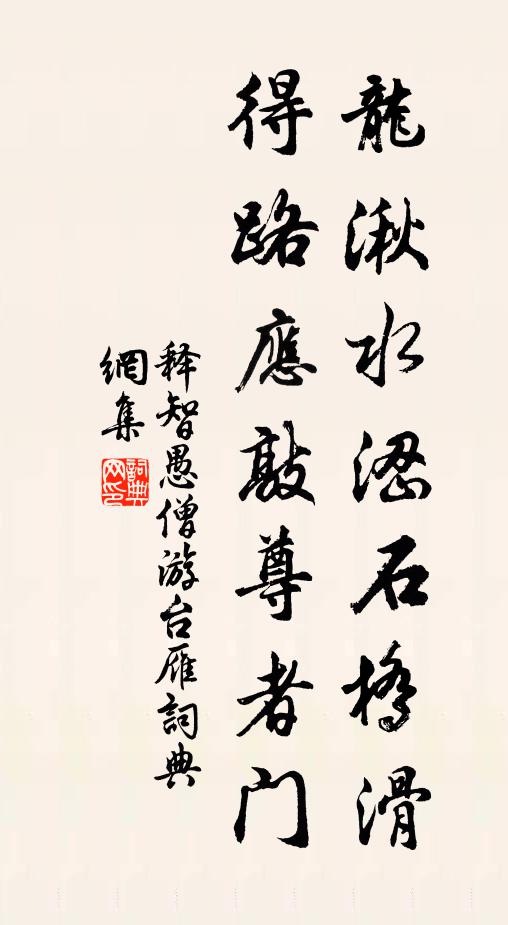 龍湫水澀石橋滑
得路應敲尊者門
释智愚僧游台雁詞典
網集
詞典网印